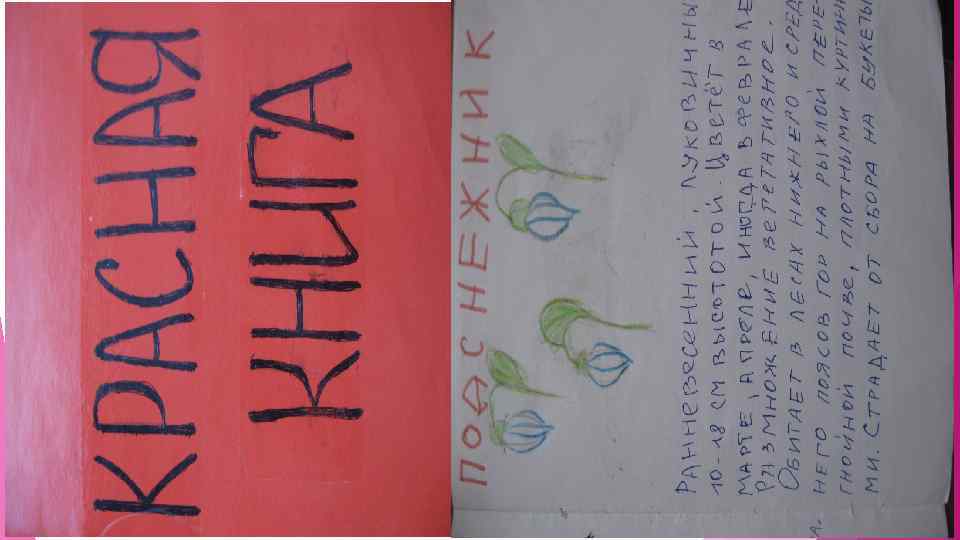 КРАСНАЯ
КНИГА
ПОДСНЕЖНИК
РАННЕВЕСЕННИЙ, ЛУКОВИЧНЫ
10-18 СМ ВЫСОТОЙ. ЦВЕТЁТ В
МАРТЕ, АПРЕЛЕ, ИНОГДА В ФЕВРАЛЕ
РАЗМНОЖЕНИЕ ВЕГЕТАТИВНОЕ.
ОБИТАЕТ В ЛЕСАХ НИЖНЕГО И СРЕД
НЕГО ПОЯСОВ ГОР НА РЫХЛОЙ ПЕРЕ-
ГНОЙНОЙ ПОЧВЕ, ПЛОТНЫМИ КУРТИН
МИ. СТРАДАЕТ ОТ СБОРА НА БУКЕТЫ